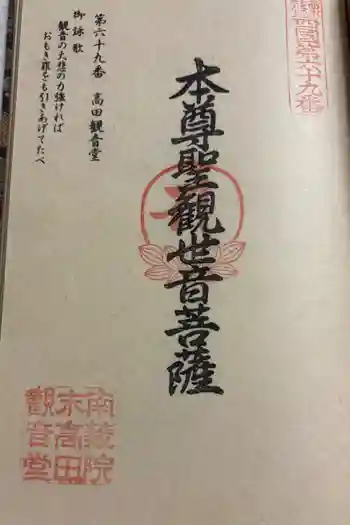 四國第六十九番
本尊聖観世音菩薩
第六十九番　高田観音堂
御詠歌
観音の大悲の力強ければ
おもき罪をも引きあげてたべ
南蔵院
末高田
観音堂